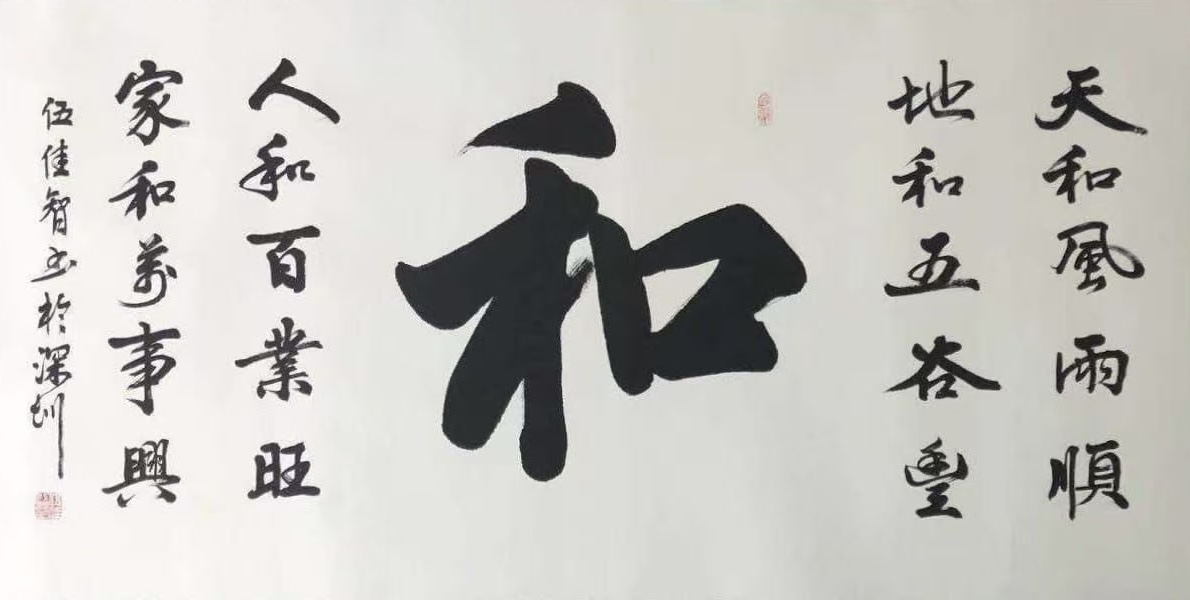 天和風雨順
地和五谷豐
和
人和百業旺
家和萬事興
伍佳智书於深圳